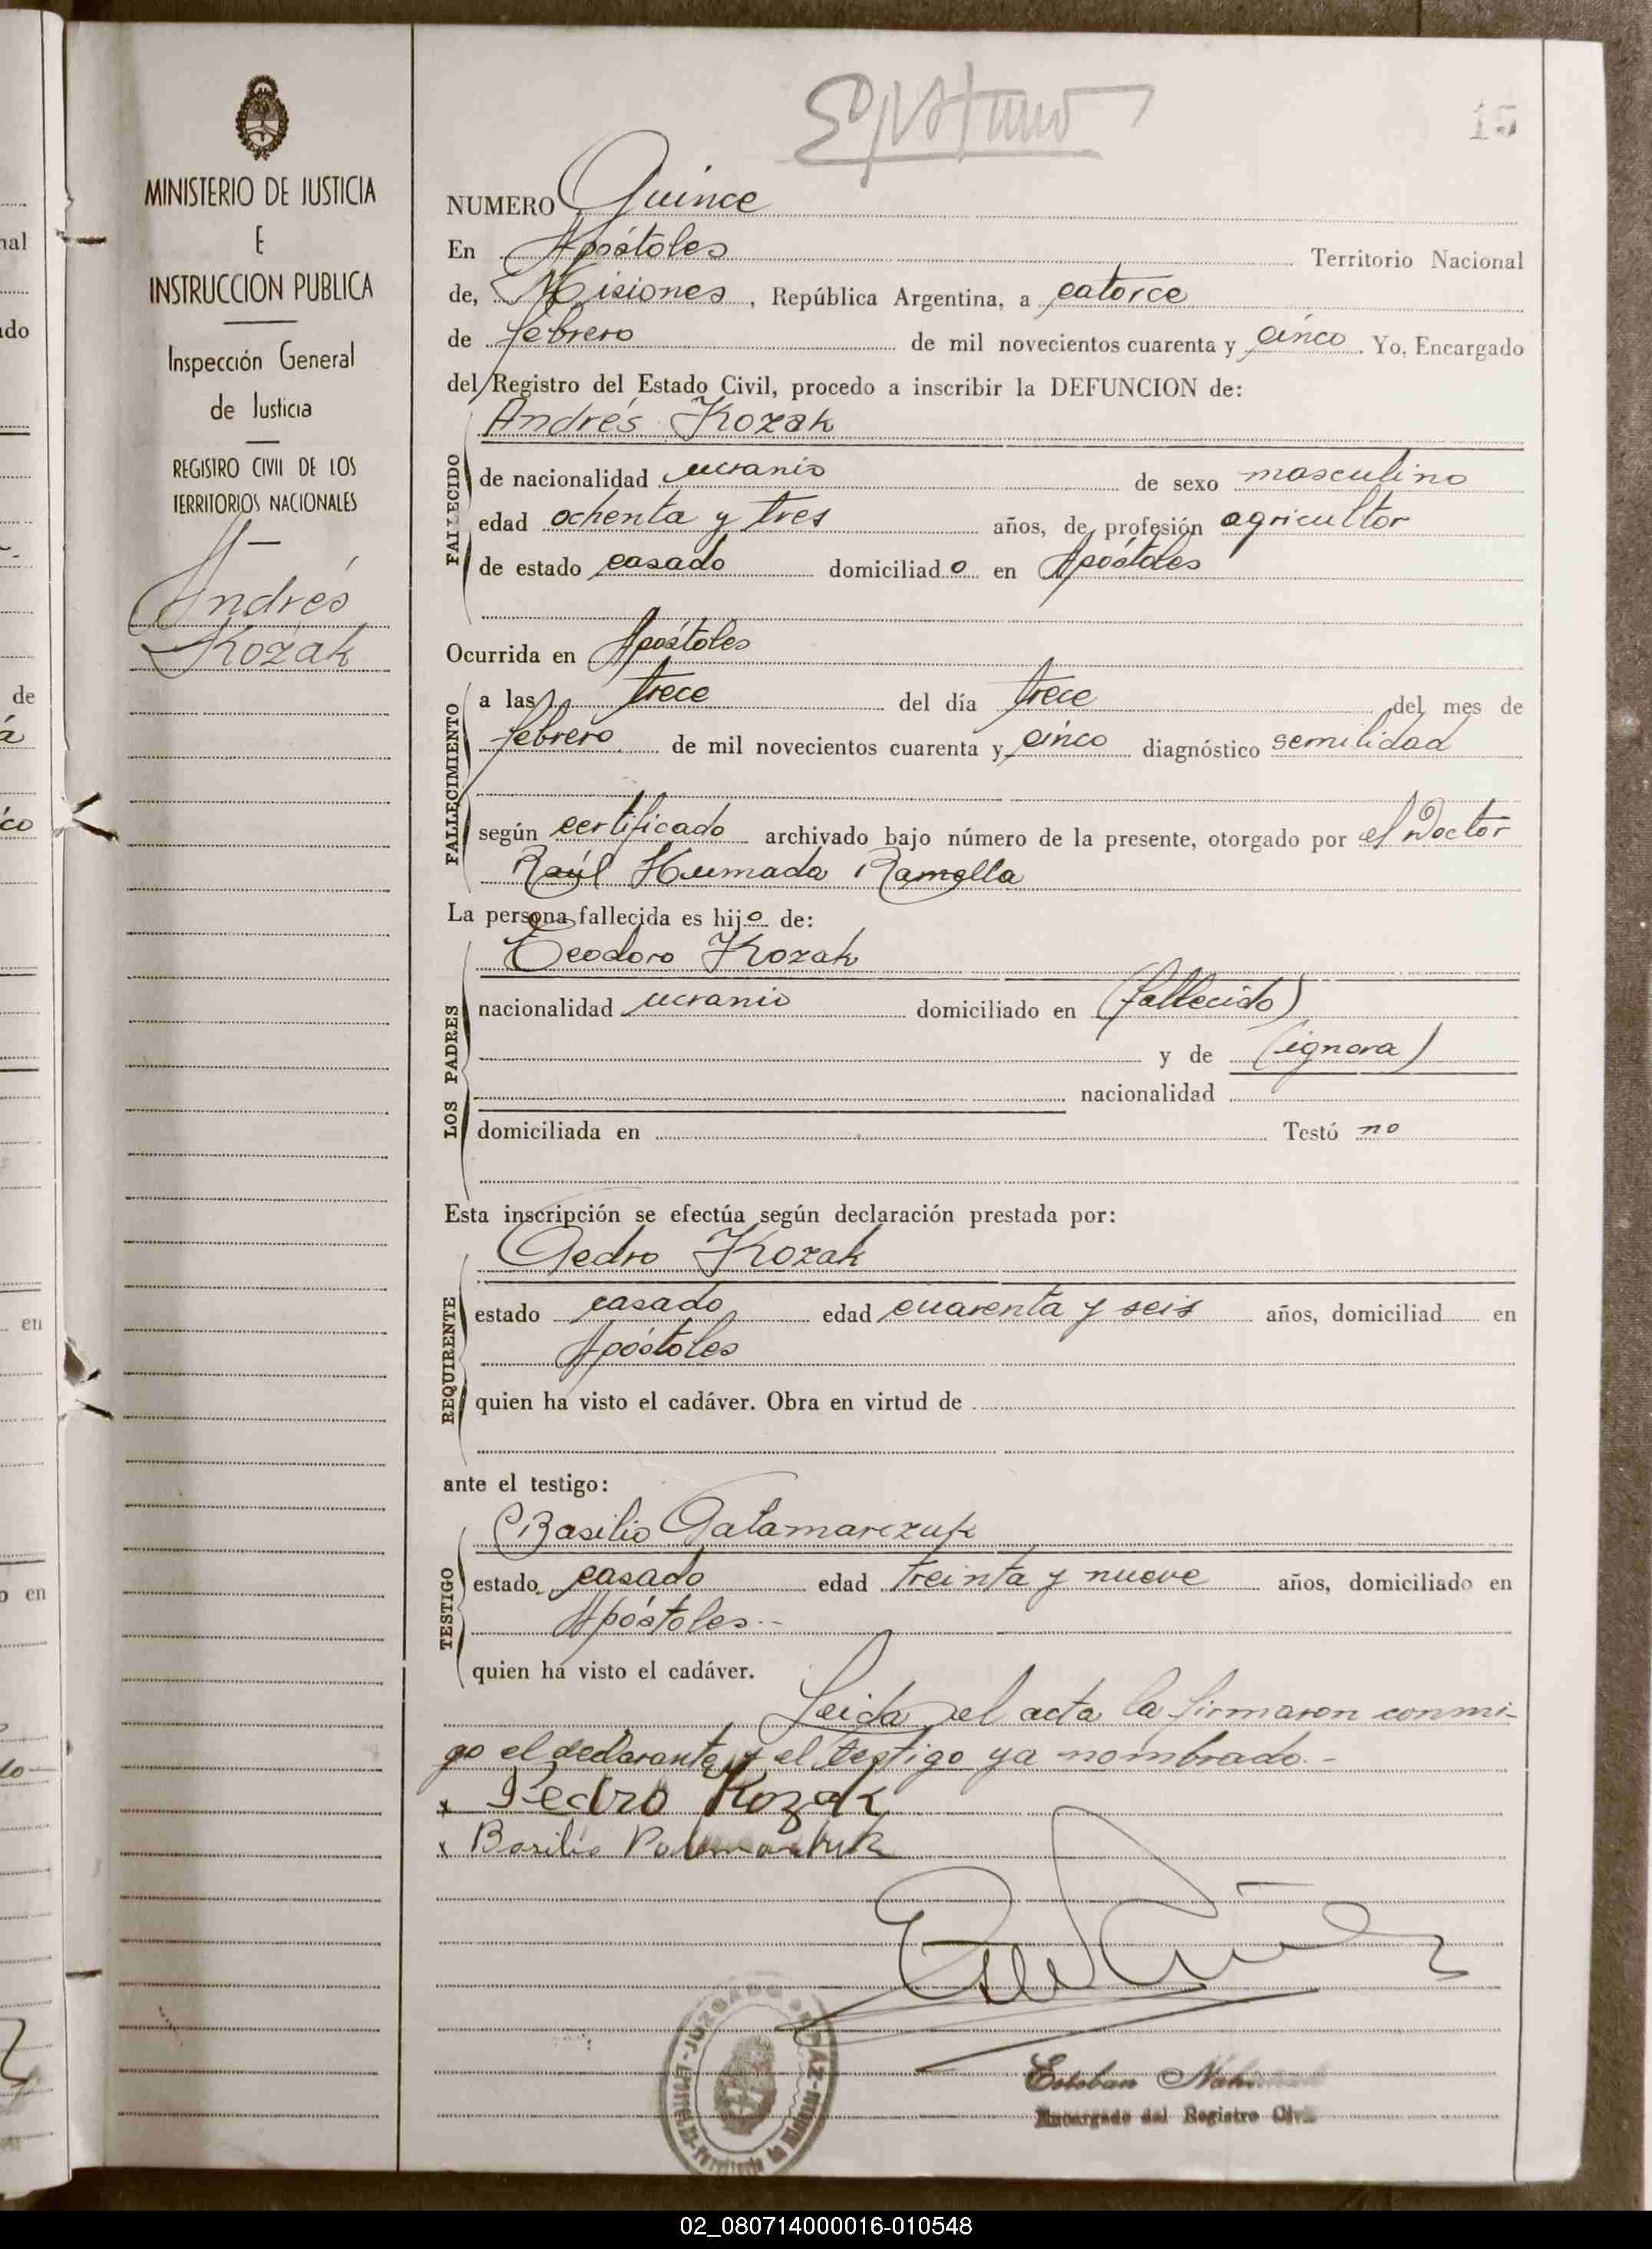 15
MINISTERIO DE JUSTICIA
E
INSTRUCCION PUBLICA
Inspección General
de Justicia
REGISTRO CIVIL DE LOS
TERRITORIOS NACIONALES
Andrés
Kozak
NUMERO Quince
En Apóstoles Territorio Nacional
de, Misiones, República Argentina, a catorce
de febrero de mil novecientos cuarenta y cinco. Yo, Encargado
del Registro del Estado Civil, procedo a inscribir la DEFUNCION de:
Andrés Kozak
FALLECIDO
de nacionalidad ucranio de sexo masculino
edad ochenta y tres años, de profesión agricultor
de estado casado domiciliado en Apóstoles
Ocurrida en Apóstoles
FALLECIMIENTO
a las trece del día trece del mes de
febrero de mil novecientos cuarenta y cinco diagnóstico semilidad
según certificado archivado bajo número de la presente, otorgado por el Doctor
Raúl Humada Ramella
La persona fallecida es hijo de:
Teodoro Kozak
LOS PADRES
nacionalidad ucranio domiciliado en (fallecido)
y de (ignora)
nacionalidad
domiciliada en Testó no
Esta inscripción se efectúa según declaración prestada por:
Pedro Kozak
REQUIRENTE
estado casado edad cuarenta y seis años, domiciliad en
Apóstoles
quien ha visto el cadáver. Obra en virtud de
ante el testigo:
Basilio Palamarczuk
TESTIGO
estado casado edad treinta y nueve años, domiciliado en
Apóstoles.-
quien ha visto el cadáver.
Leida el acta la firmaron conmi-
go el declarante y el testigo ya nombrado.-
x Pedro Kozak
x Basilio
Esteban
Encargado del Registro Civil
02_080714000016-010548